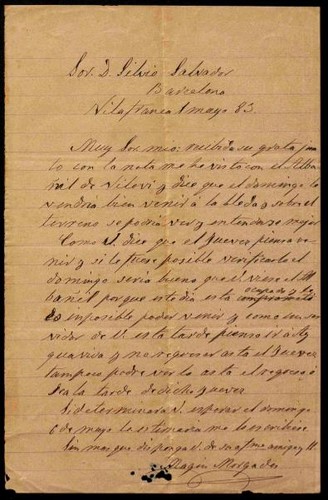 Sor. D. Silvio Salvador
Barcelona
Vilafranca 1 mayo 83.
Muy Sor mio: recibi da su grata jun
to con la nota me he visto con el Alba
ñil de Vilovi y dice que el domingo le
vendria bien venir á la Bleda y sobre el
terreno se podrá ver y entenderse mejor
Como V. dice que el Jueves piensa ve
nir y si le fuese posible verificarlo el
domingo seria bueno que V. viese el Al
bañil porque este dia está
imposible poder venir y como un ser
vidor de V. esta tarde pienso ir á
y no regresar asta el Jueves
tampoco podré verlo asta el regreso ó
sea la tarde de dicho jueves
Si determinara V. esperar el domingo
6 de mayo la estimaria me lo escribiera
Sin mas que disponga V. de su afmo amigo y
Magin Morgades